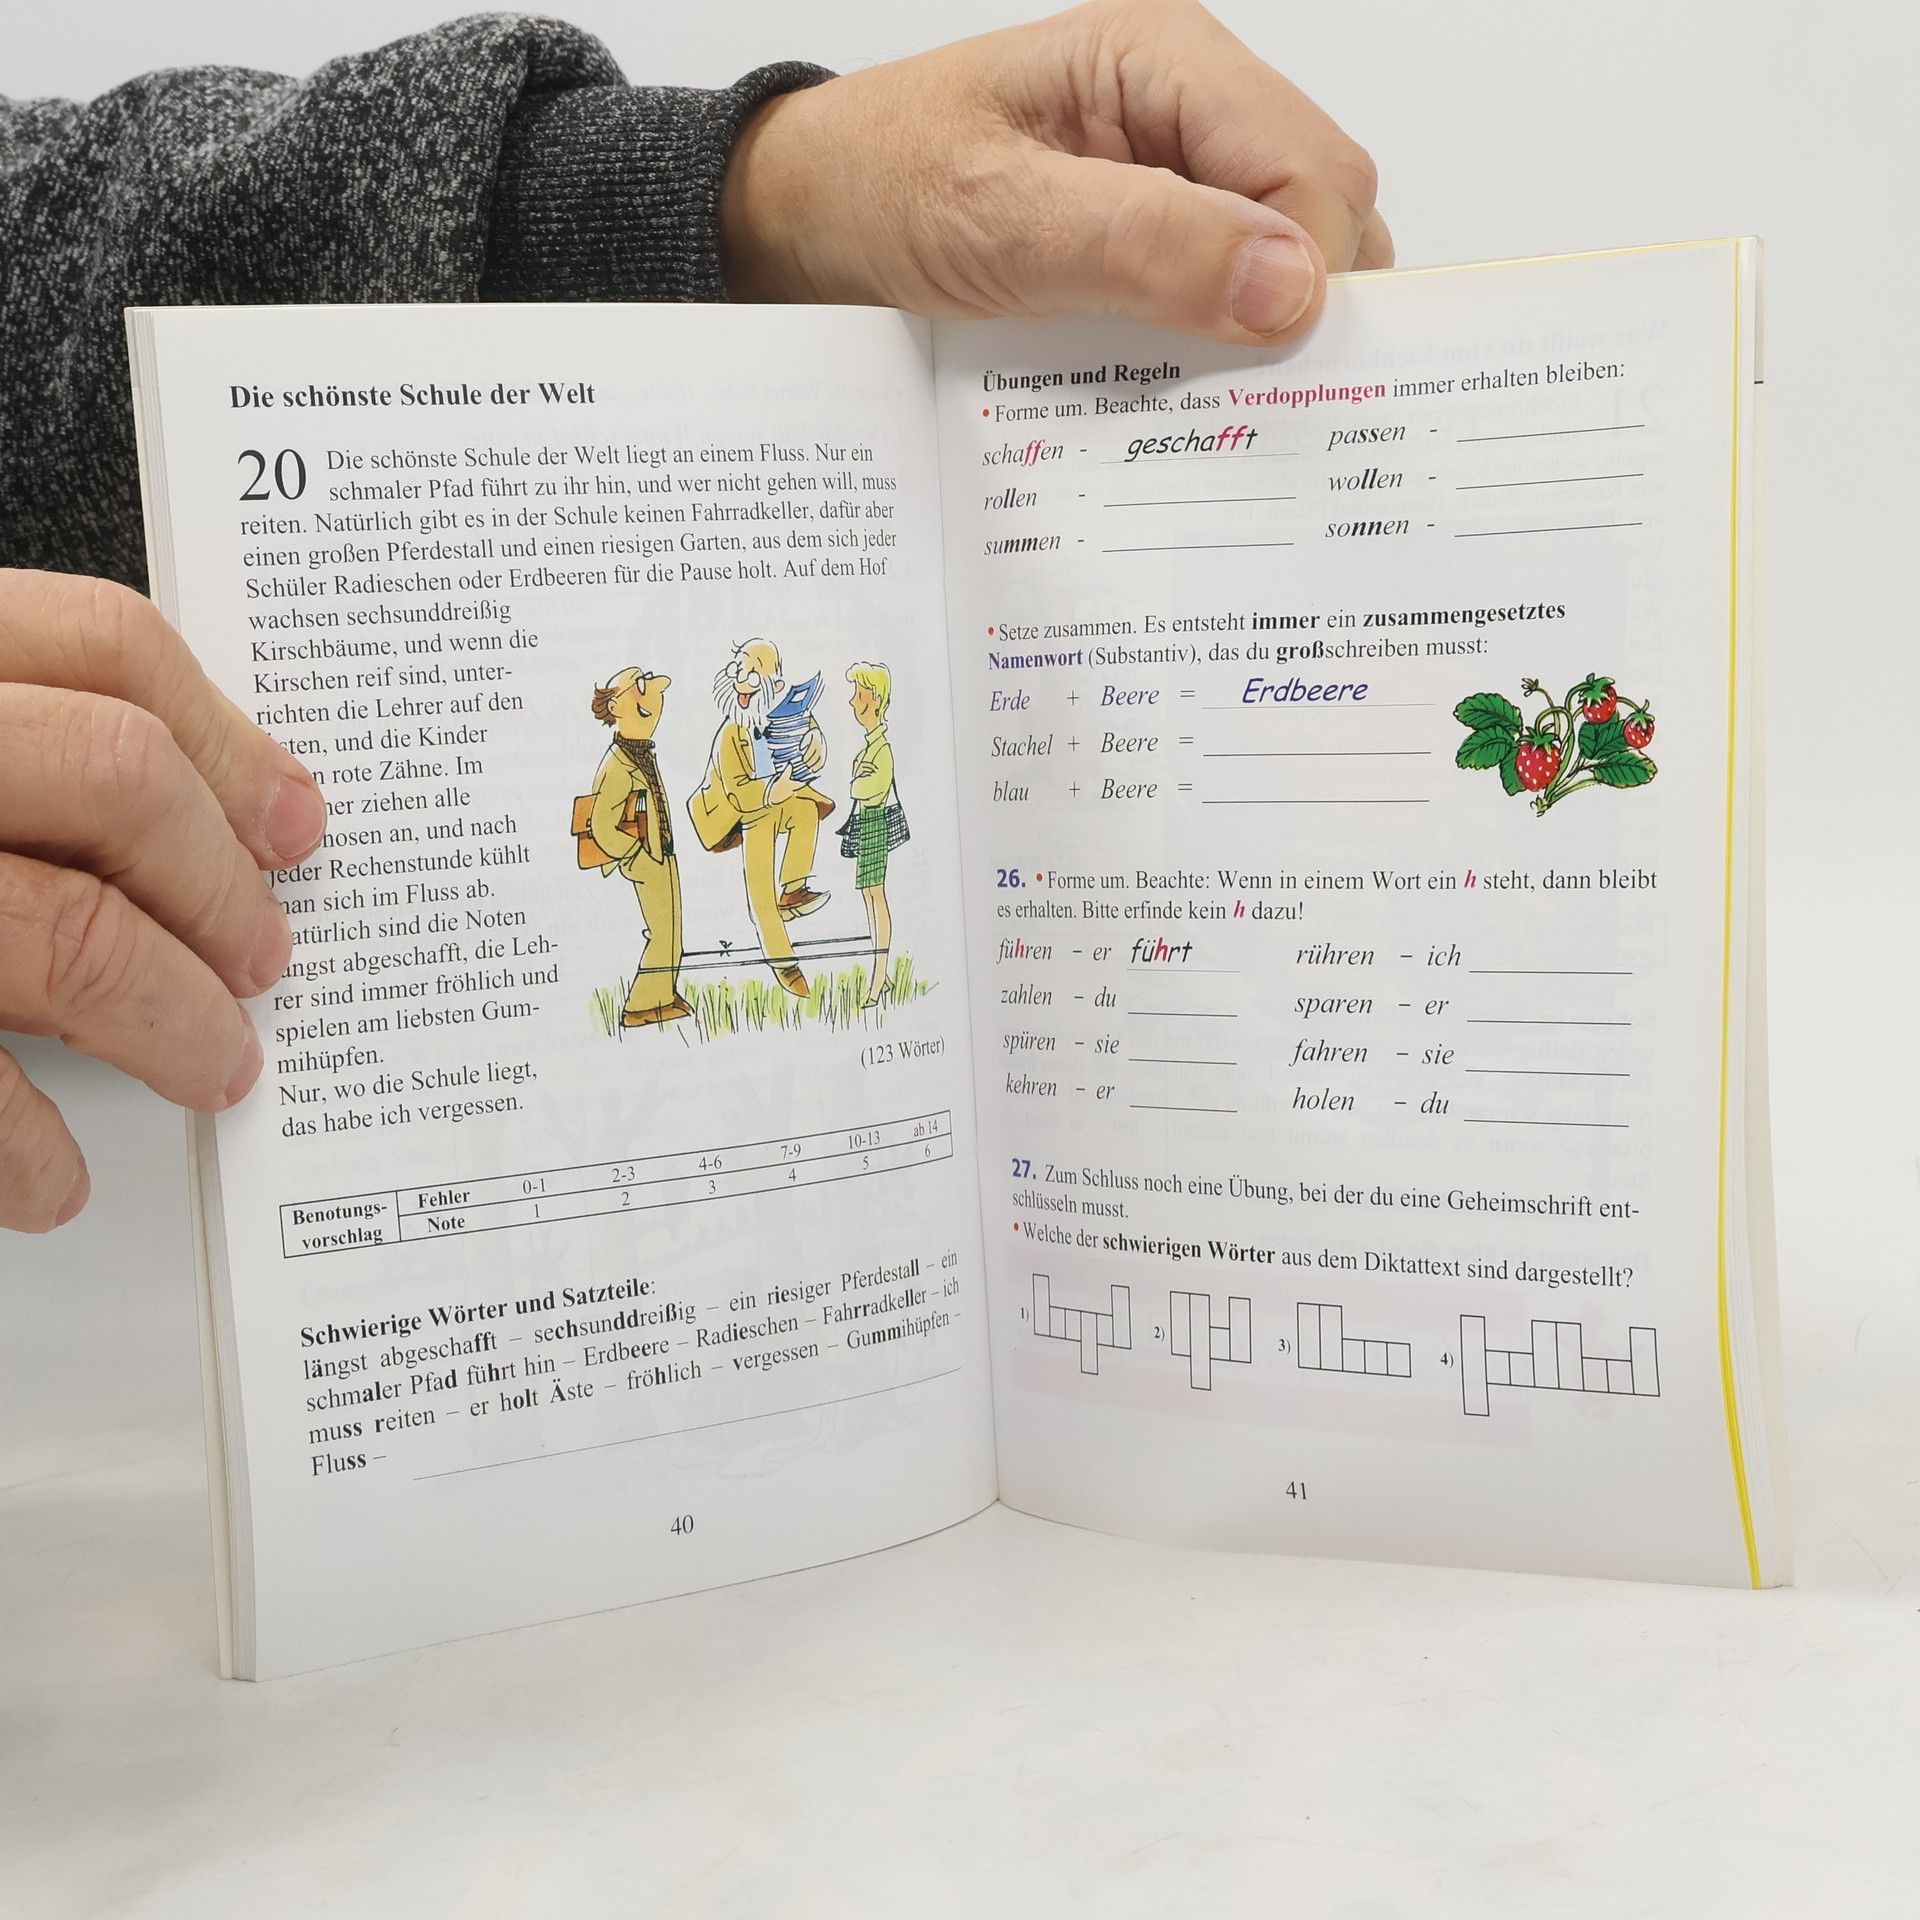 Die schönste Schule der Welt
20 Die schönste Schule der Welt liegt an einem Fluss. Nur ein
schmaler Pfad führt zu ihr hin, und wer nicht gehen will, muss
reiten. Natürlich gibt es in der Schule keinen Fahrradkeller, dafür aber
einen großen Pferdestall und einen riesigen Garten, aus dem sich jeder
Schüler Radieschen oder Erdbeeren für die Pause holt. Auf dem Hof
wachsen sechsunddreißig
Kirschbäume, und wenn die
Kirschen reif sind, unter-
richten die Lehrer auf den
sten, und die Kinder
n rote Zähne. Im
er ziehen alle
hosen an, und nach
jeder Rechenstunde kühlt
man sich im Fluss ab.
atürlich sind die Noten
ängst abgeschafft, die Leh-
rer sind immer fröhlich und
spielen am liebsten Gum-
mihüpfen.
Nur, wo die Schule liegt,
das habe ich vergessen.
(123 Wörter)
Benotungs-
vorschlag
Fehler 0-1 2-3 4-6 7-9 10-13 ab 14
Note 1 2 3 4 5 6
Schwierige Wörter und Satzteile:
längst abgeschafft – sechsunddreißig – ein riesiger Pferdestall – ein
schmaler Pfad führt hin – Erdbeere – Radieschen – Fahrradkeller – ich
muss reiten – er holt Äste – fröhlich – vergessen – Gummihüpfen –
Fluss –
40
Übungen und Regeln
• Forme um. Beachte, dass Verdopplungen immer erhalten bleiben:
schaffen - geschafft passen -
rollen - wollen -
summen - sonnen -
• Setze zusammen. Es entsteht immer ein zusammengesetztes
Namenwort (Substantiv), das du großschreiben musst:
Erde + Beere = Erdbeere
Stachel + Beere =
blau + Beere =
26. • Forme um. Beachte: Wenn in einem Wort ein h steht, dann bleibt
es erhalten. Bitte erfinde kein h dazu!
führen – er führt rühren – ich
zahlen – du sparen – er
spüren – sie fahren – sie
kehren – er holen – du
27. Zum Schluss noch eine Übung, bei der du eine Geheimschrift ent-
schlüsseln musst.
• Welche der schwierigen Wörter aus dem Diktattext sind dargestellt?
1) 2) 3) 4)
41